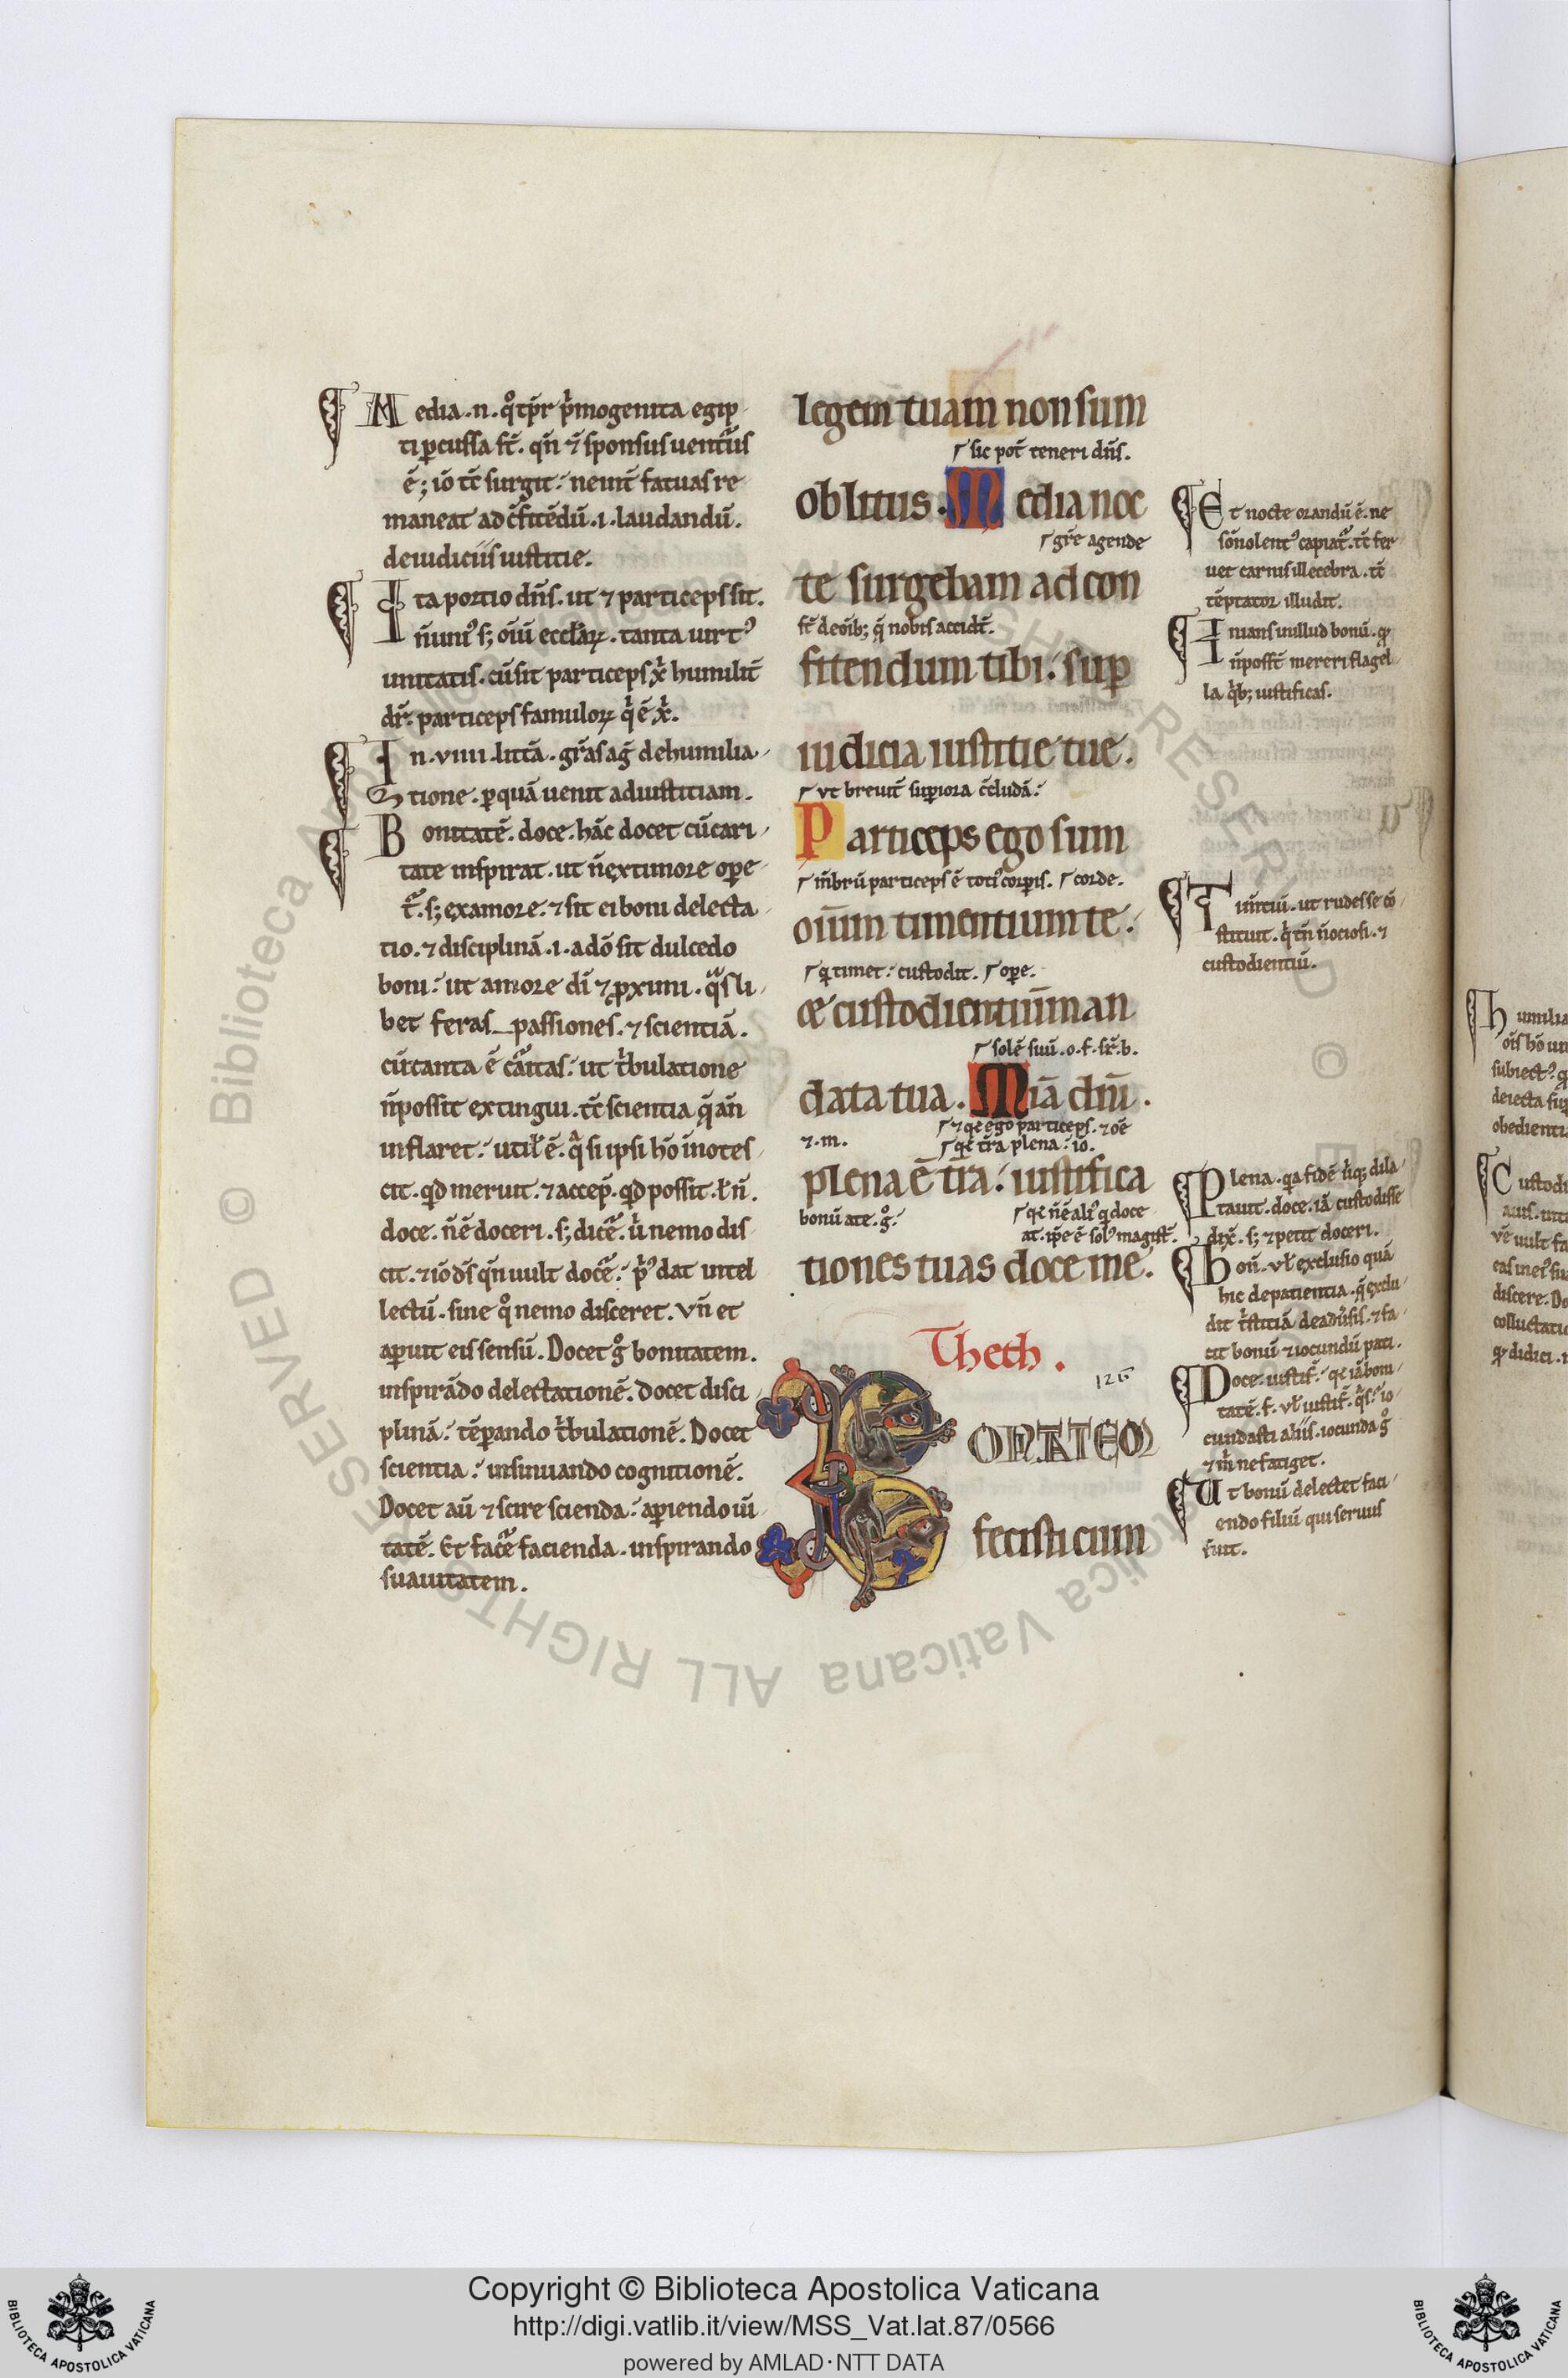 Media .n. qͦ tꝑr pͥmogenita egip
ti ꝑcussa st̄. qn̄ ⁊ sponsus uentuͬus
ē; iō tc̄ surgit: ne uint̄ fatuas re
maneat ad c̄fitēdū .i. laudandū.
de iudiciis iustitie.
Ita portio dn̄s. ut ⁊ particeps sit.
n̄ uniꝰ s; oīū eccl̄aꝝ. tanta uirtꝰ
unitatis. cū sit particeps xͥ humilit̄
dr̄. particeps famuloꝝ qͥ ē xͥ.
In .viiii. litt̄a. grās aḡ de humilia
tione. ꝑ quā uenit ad iustitiam.
Bonitatē. doce. hāc docet cū cari
tate inspirat. ut n̄ ex timore oꝑe
tͬ. s; ex amore. ⁊ sit ei boni delecta
tio. ⁊ disciplinā .i. a dō sit dulcedo
boni: ut amore di ⁊ ꝓximi. qͣsli
bet feras passiones. ⁊ scientiā.
cū tanta ē cāͬitas: ut tͥbulatione
n̄ possit extingui. tc̄ scientia q̄ an̄
inflaret: utił ē. qͣ si ipsi hō inotes
cit. qd̄ meruit. ⁊ accep̄. qd̄ possit. ł n̄.
doce. n̄ ē doceri. s; dicēͬ. uͥ nemo dis
cit. ⁊ iō ds̄ qn̄ uult docēͬ: pͥꝰ dat intel
lectū. sine qͦ nemo disceret. Vn̄ et
aꝑuit eis sensū. Docet gͦ bonitatem.
inspirādo delectationē. docet disci
plinā: tēꝑando tͥbulationē. Docet
scientia: insinuando cognitionē.
Docet aū ⁊ scire scienda: aꝑiendo ui
tatē. Et facēͬ facienda. inspirando
suauitatem.
legem tuam non sum
sic pot̄ teneri dn̄s.
oblitus. Media noc
grē agende
te surgebam ad con
st̄ de oīb; q̄ nobis accidt̄.
fitendum tibi: suꝑ
iudicia iustitie tue.
vt breuit̄ suꝑiora c̄cludā:
Particeps ego sum
m̄brū particeps ē totiꝰ corꝑis. corde.
oīum timentium te:
q timet: custodit. oꝑe.
⁊ custodientium man
solē suū .o. f. sr̄. b.
data tua. Mīa dn̄i.
⁊ qꝛ ego particeps. ⁊ oē
⁊ .m. qꝛ tr̄a plena: iō.
plena ē tr̄a: iustifica
bonū a te. gͦ: qꝛ n̄ ē aliꝰ q doce
at. iꝑe ē solꝰ magist̄.
tiones tuas doce me.
Theth.
126
BONITATEM
fecisti cum
Et nocte orandū ē. ne
sōnolentꝰ capiatͬ. tc̄ fer
uet carnis illecebra. tc̄
tēptator illudit.
Inians in illud bonū. qꝛ
n̄ posst̄ mereri flagel
la qͥb; iustificas.
Timentiū. ut rudes se cō
stituit. qͥ tn̄ n̄ ociosi. ⁊
custodientiū.
Plena. qa fidē u͛iq; dila
tauit. doce. iā custodisse
dix̄. s; ⁊ petit doceri.
Bon̄. vł exclusio quā
hic de patientia. q̄ exclu
dit tͥstitiā de adūsis. ⁊ fa
cit bonū ⁊ iocundū pati.
Doce. iustif̄: qꝛ iā boni
tatē. f. vł iustif̄. qͣs: io
cundasti aliis. iocunda gͦ
⁊ mͥ ne fatiget.
Ut bonū delectet faci
endo filiū qui seruus
fuit.
Humilia
subiectꝰ
deiecta
obedient
Custodi
discere. Do
qꝛ didici.
Copyright © Biblioteca Apostolica Vaticana
http://digi.vatlib.it/view/MSS_Vat.lat.87/0566
powered by AMLAD·NTT DATA
BIBLIOTECA APOSTOLICA VATICANA
BIBLIOTECA APOSTOLICA VATICANA
© Biblioteca Apostolica Vaticana ALL RIGHTS RESERVED